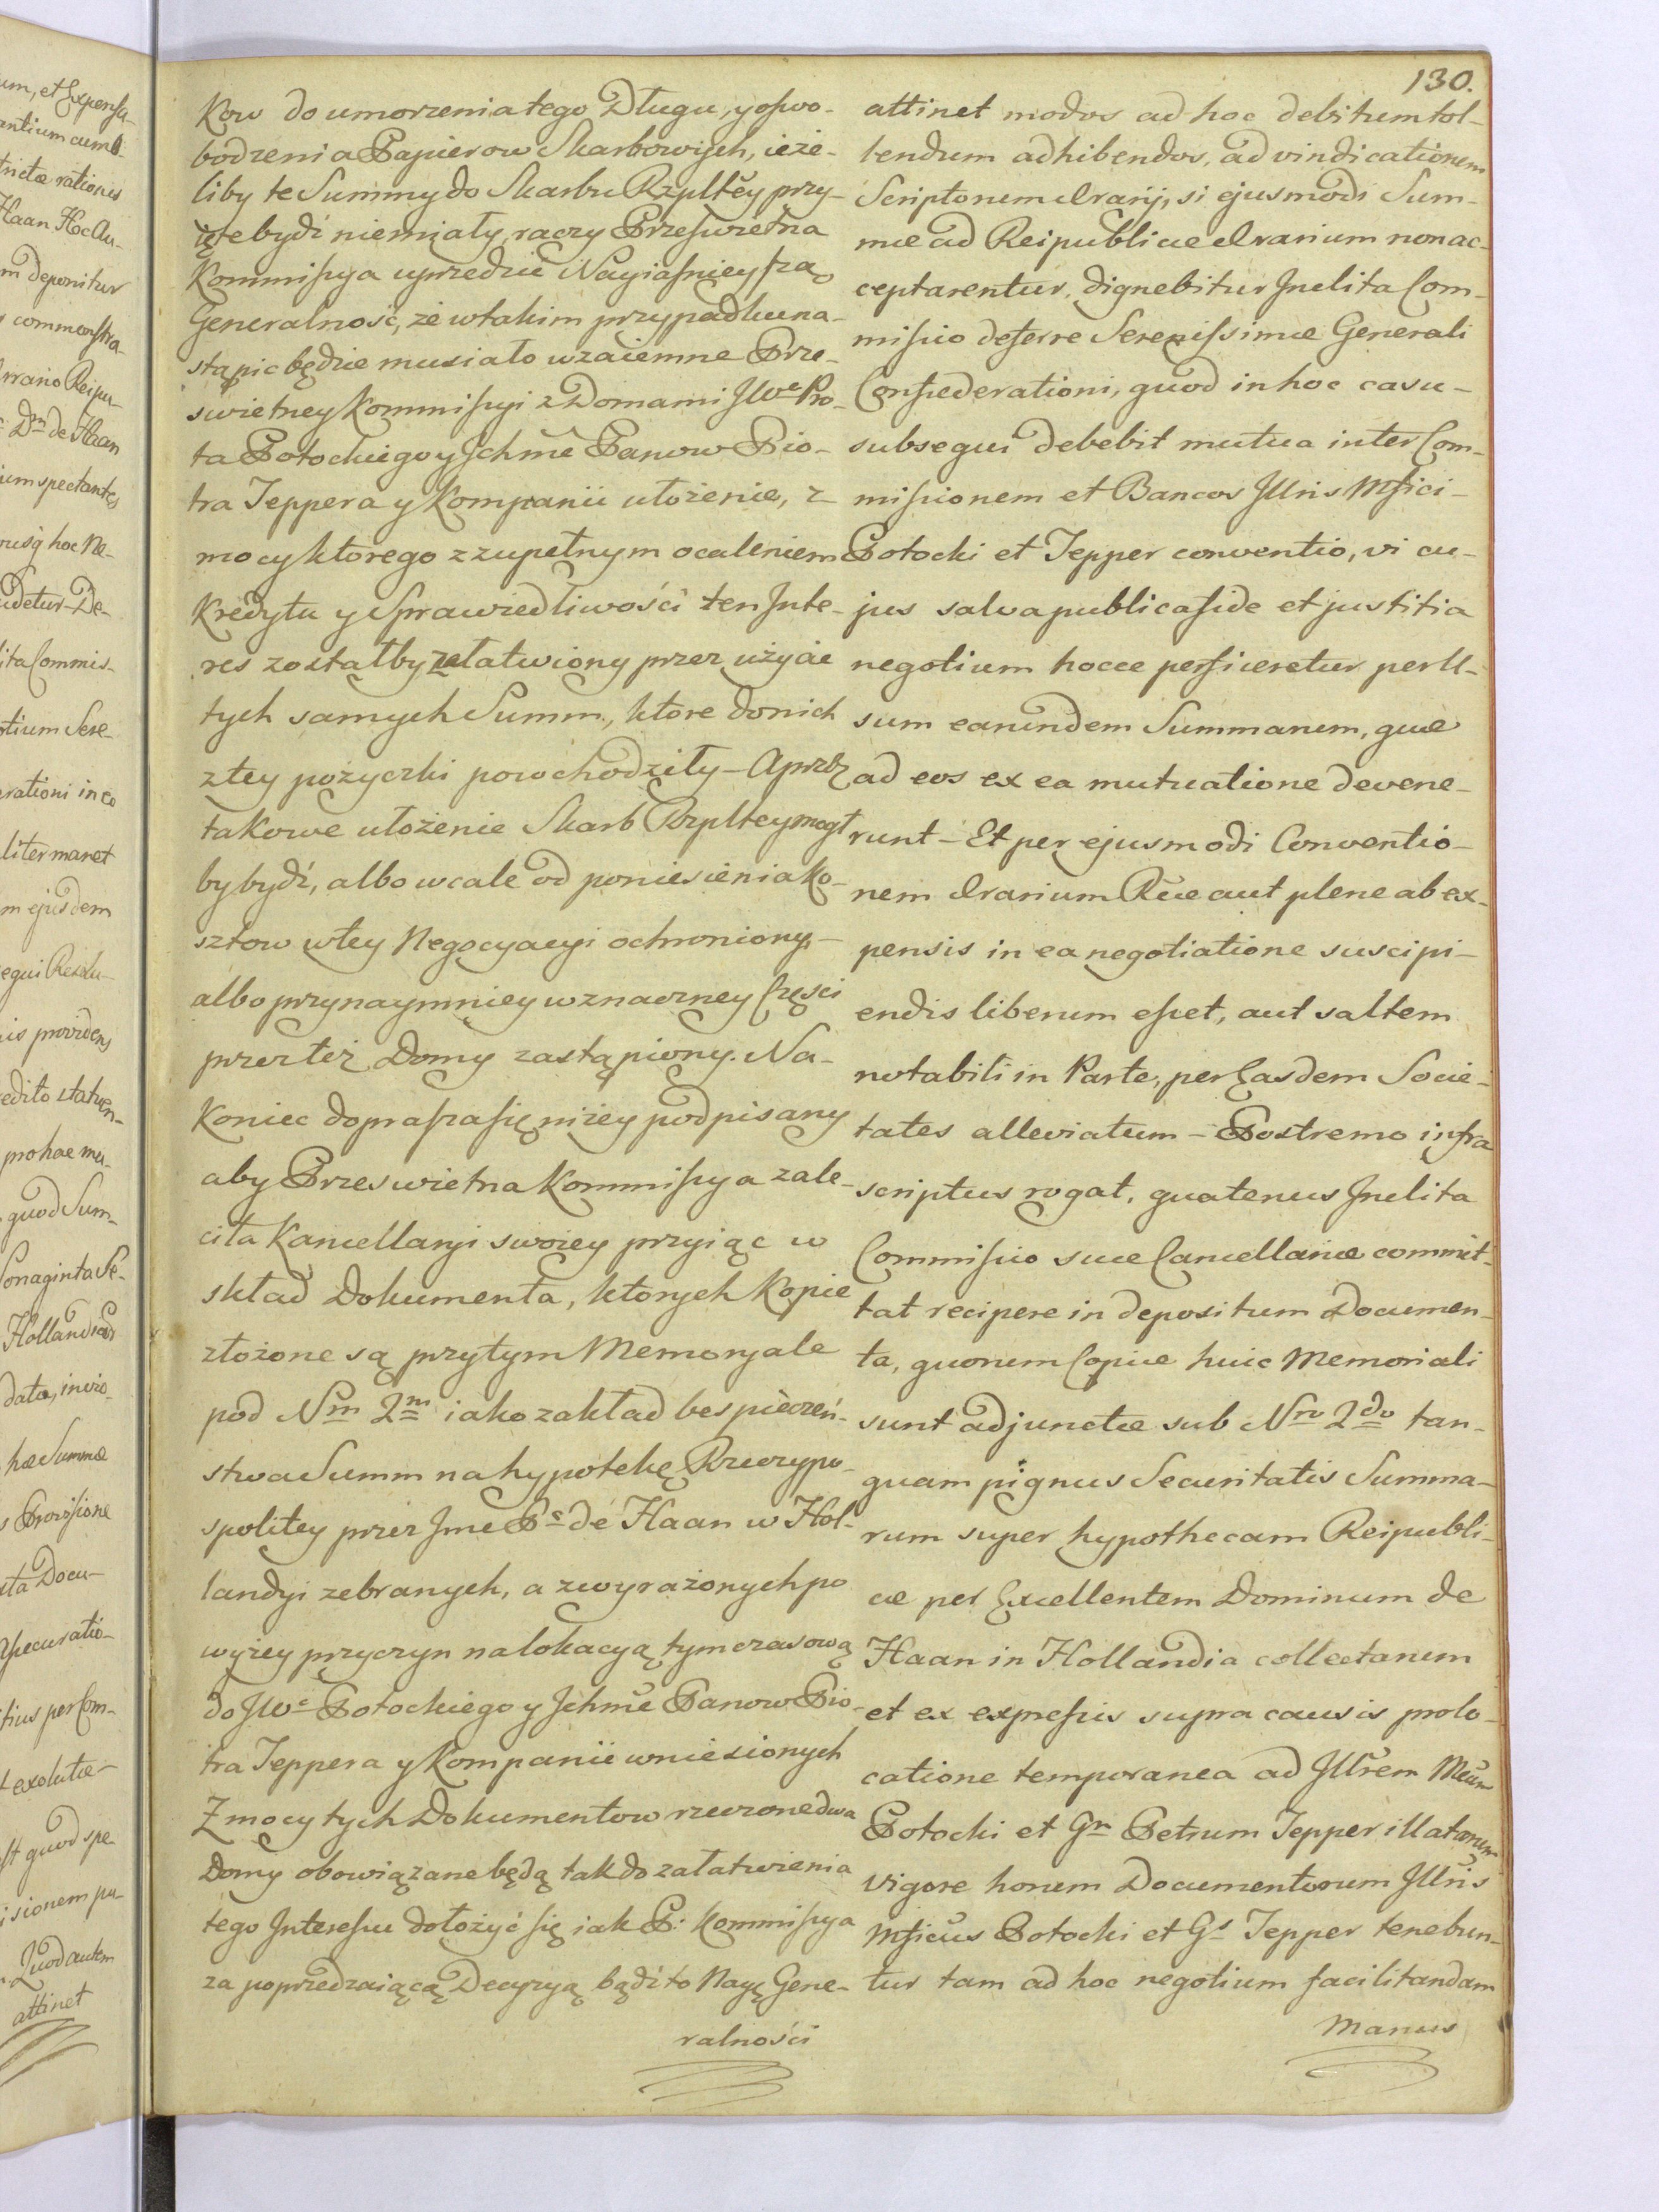 130.
kow do umorzenia tego Długu, y oswo-
bodzenia Papierow Skarbowych, ieże-
liby te Summy do Skarbu Rzpltey przy-
ięte bydź niemiały, raczy Przeswietna
Kommissya uprzedzic Nayiasnieyszą
Generalność, że w takim przypadku na-
stąpic będzie musiało wzaiemne Prze-
swietney Kommissyi z Domami JWe Pro-
ta Potockiego y Jchme Panow Pio-
tra Teppera y Kompanii ułożenie, z
mocy ktorego z zupełnym ocaleniem
Kredytu y Sprawiedliwości ten Inte-
res zostałby załatwiony przez użycie
tych samych Summ, ktore do nich
z tey pożyczki powchodziły – A przez
takowe ułożenie Skarb Rzpltey mogł
by bydź, albo wcale od poniesienia ko-
sztow w tey Negocyacyi ochroniony,
albo przynaymniey w znaczney Części
przez też Domy zastąpiony. Na-
koniec doprasza się niżey podpisany
aby Przeswietna Kommissya zale-
ciła Kancellaryi swoiey przyiąc w
skład Dokumenta, ktorych Kopie
złożone są przy tym Memoryale
pod Nm 2m iako zakład bespieczeń-
stwa Summ na hypotekę Rzeczypo-
spolitey przez Jme Pa de Haan w Hol-
landyi zebranych, a z wyrażonych po
wyżey przyczyn na lokacyą tymczasową
do JWe Potockiego y Jchme Panow Pio-
tra Teppera y Kompanii wniesionych
Z mocy tych Dokumentow rzeczone dwa
Domy obowiązane będą tak do załatwienia
tego Interessu dołożyć się iak P: Kommissya
za poprzedzaiącą Decyzyą bądź to Nayę Gene-
ralności
attinet modos ad hoc debitum tol-
lendum adhibendos, ad vindicationem
Scriptorum Ærarij, si ejusmodi Sum-
mæ ad Reipublicæ Ærarium non ac-
ceptarentur, dignebitur Inclita Com-
missio deferre Serenissimæ Generali
Confæderationi, quod in hoc casu -
subsequi debebit mutua inter Com-
missionem et Bancos Jllris Mfici -
Potocki et Tepper conventio, vi cu-
jus salva publica fide et justitia
negotium hocce perficeretur per U-
sum earundem Summarum, quæ
ad eos ex ea mutuatione devene-
runt – Et per ejusmodi Conventio-
nem Ærarium Rcæ aut plene ab ex-
pensis in ea negotiatione suscipi-
endis liberum esset, aut saltem
notabili in Parte, per Easdem Socie-
tates alleviatum – Postremo infra
scriptus rogat, quatenus Inclita
Commissio suæ Cancellariæ commit-
tat recipere in depositum Documen-
ta, quorum Copiæ huic Memoriali
sunt adjunctæ sub Nro 2do tan-
quam pignus Securitatis Summa-
rum super hypothecam Reipubli-
cæ per Excellentem Dominum de
Haan in Hollandia collectarum
et ex expressis supra causis pro lo-
catione temporanea ad Jllrem Mcum
Potocki et Gm Petrum Tepper illatarum
Vigore horum Documentorum Jllris
Mficus Potocki et Gs Tepper tenebun-
tur tam ad hoc negotium facilitandam
manus
um, et Expensa-
antium cum
trictæ rationis
Haan Hoc Au-
m deponitur
commonstra-
Ærario Reipu-
Dm de Haan
ium spectantes
usq hoc Ne-
udetur De-
lita Commis-
otium Sere-
erationi in eo
liter manet
m ejusdem
equi Resolu-
is providens
edito statuen-
pro hac mu-
quod Sum-
onaginta Se-
Hollandiæ
data, in
hæ Summæ
Provisione
cta Docu-
ssecuratio-
tius per Com-
exolutæ -
st quod spe-
isionem pu-
Quod autem
attinet